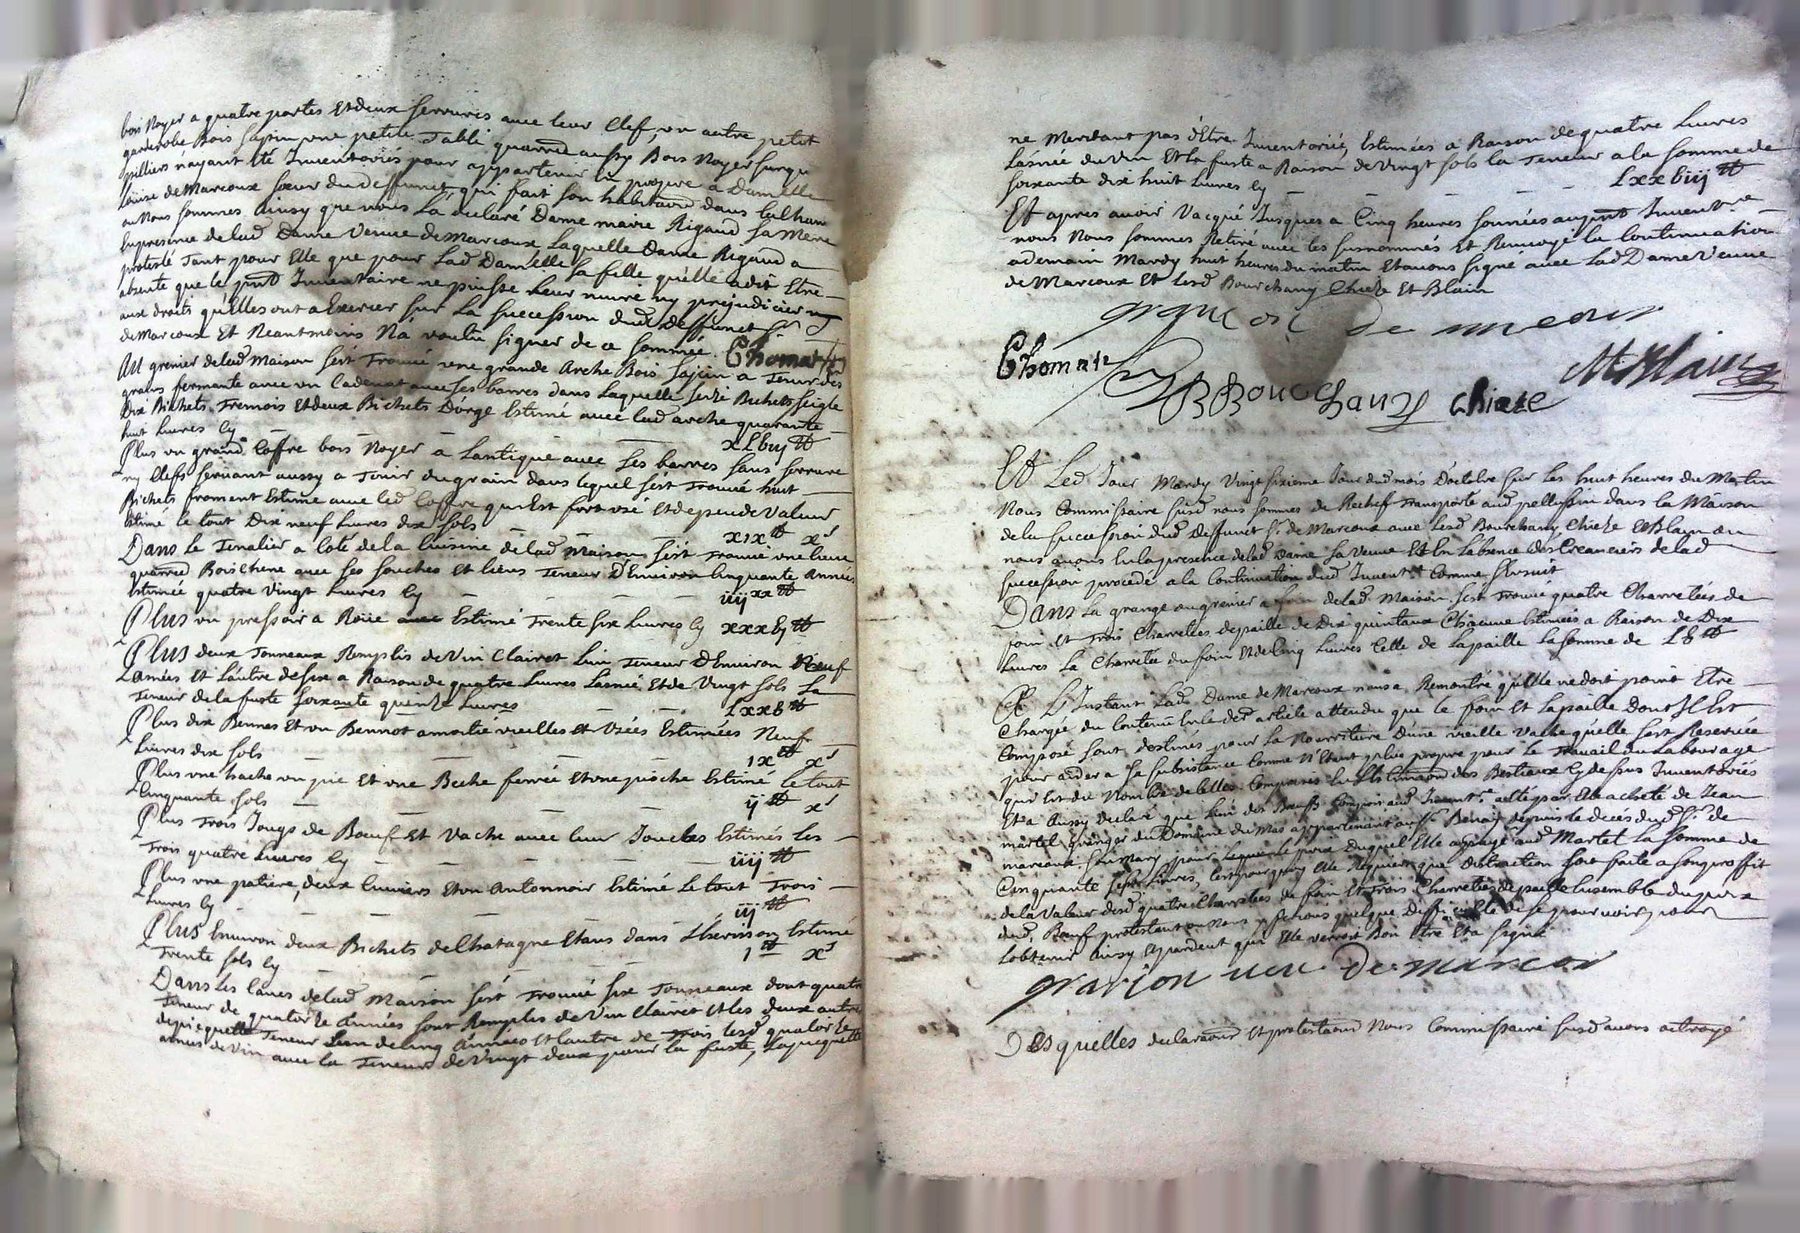 bois Noyer a quatre portes Et deux serrures avec leur Clef, un autre petit
garderobe Bois sapin une petite Table quarrée aussy Bois Noyer
pilliers n'ayant été Inventoriés pour appartenir en propre a Damlle
Loüise de Marcoux sœur dud deffunct, qui fait son habitaõn dans
ou Nous sommes Ainsy que nous l'a déclaré Dame maire Rigaud sa Mere
En presence de lad Dame Veuve de Marcoux Laquelle Dame Rigaud a
protesté Tant pour Elle que pour Lad Damelle sa fille qu'elle a dit Etre
absente que le pnt Inventaire ne puisse Leur nuire ny préjudicier
aux droits qu'Elles ont a Exercer sur La succession dud Deffunct Sr
de Marcoux Et Neantmoins N'a voulu signer de ce sommée. Thomas
Au grenier de lad Maison s'est Trouvé une grande Arche Bois sapin a Tenir des
grains fermante avec un Cadenat avec ses barres dans Laquelle seize Bichets seigle
dix Bichets Tremois Et deux Bichets D'orge Estimé avec lad arche quarante
huit Livres Cy xLbiij ₶
Plus un grand Coffre bois Noyer a L'antique avec ses barres sans serrure
ny Clefs servant aussy a Tenir du grain dans lequel s'est Trouvé huit
Bichets froment Estimé avec led Coffre qui Est fort usé Et de peu de Valeur
Estimé le tout Dix neuf Livres dix sols xix ₶ xs
Dans Le Tinalier a Coté de la Cuisine de lad Maison s'est Trouvé une Cuve
quarrée Bois Chene avec ses souches Et liens Teneur D'Environ Cinquante Années
Estimée quatre Vingt Livres Cy iiijxx ₶
Plus un pressoir a Roüe avec Estimé Trente six Livres Cy xxxbj ₶
Plus deux Tonneaux Remplis de Vin Clairet L'un Teneur D'Environ Neuf
Lanées Et L'autre de six a Raison de quatre Livres L'asnée Et de Vingt sols La
Teneur de la fuste soixante quinze Livres Lxxb ₶
Plus dix Bennes Et un Bennot a moitié vieilles Et Usées Estimées Neuf
Livres dix sols ix ₶ xs
Plus une hache un pic Et une Beche ferrée Et une pioche Estimé Le tout
Cinquante sols ij ₶ xs
Plus Trois Jougs de Bœuf Et Vache avec leur Joucles Estimés Les
Trois quatre Livres Cy iiij ₶
Plus une patiere, deux Cuviers Et un Antonnoir Estimé Le tout Trois
Livres Cy iij ₶
Plus Environ deux Bichets de Chatagne Etans dans L'hérisson Estimé
Trente sols Cy 1 ₶ xs
Dans les Caves de lad Maison s'est Trouvé six Tonneaux dont quatre
Teneur de quatorze Années sont Remplis de Vin Clairet Et les deux autres
de piequette Teneur L'un de Cinq Années Et L'autre de Trois Lesd quatorze
années de Vin avec la Teneur de Vingt deux pour la fuste, La piequette
ne Meritant pas d'Etre Inventoriée, Estimées a Raison de quatre Livres
Lasnée du Vin Et La fuste a Raison de Vingt sols la Teneur a la somme de
soixante dix huit Livres Cy Lxxbiij ₶
Et apres avoir Vacqué Jusques a Cinq heures sonnées au pnt Inventaire
nous Nous sommes Retiré avec les susnommés Et Renvoyé la Continuation
a demain Mardy huit heures du matin Et avons signé avec Lad Dame Veuve
de Marcoux Et Lesd Bourchany Chieze Et Blain
de marcou
Thomas
Bourchany Chieze Blain
Et Led Jour Mardy Vingt sixieme Jour dud mois D'octobre sur Les huit heures du Matin
Nous Commissaire susd nous sommes de Rechef Transporté aud pellussin dans la Maison
de la succession dud Deffunct Sr de Marcoux avec Lesd Bourchany Chieze Et Blain ou
nous avons En la presence de lad Dame sa Veuve Et En L'absence des Creanciers de lad
succession procédé a la Continuation dud Inventre Comme s'Ensuit
Dans La grange au grenier a foin de lad Maison s'est Trouvé quatre Charretées de
foin Et Trois Charretées de paille de Dix quintaux Chacune Estimées a Raison de Dix
Livres La Charretée du foin Et de Cinq Livres Celle de La paille La somme de Lb ₶
Et L'Instant Lad Dame de Marcoux nous a Remontré qu'Elle ne doit point Etre
Chargée du Contenu En le der article attendu que le foin Et La paille dont Il Est
Composé sont destinés pour La Nourriture D'une vieille Vache qu'elle s'est Reservée
pour aider a sa subsistence Comme N'Etant plus propre pour le Travail du Labourage
qui Est du Nombre de Celles Comprises En L'Estimaõn des Bestiaux Cy dessus Inventoriés
Et a Aussy declaré que L'un des Bœufs Compris aud Inventre a été par Elle acheté de Jean
martel granger du Domaine du Mas appartenant au Sr Benay depuis le deces dud Sr de
marcoux son mary pour Lequel Et le prix duquel Elle a payé aud Martel La somme de
Cinquante sept Livres, C'est pourquoy Elle Requiert que Distraction soit faite a son proffit
de la Valeur desd quatre Charretées de foin Et Trois Charretées de paille Ensemble du prix
dud Bœuf protestant ou Nous y ferions quelque Difficulté de se pourvoir pour
L'obtenir Ainsy Et pardevant qui Elle verroit Bon Etre Et a signé
grarion veve De marcou
Desquelles declaraõns Et protestaõns Nous Commissaire susd avons octroyé